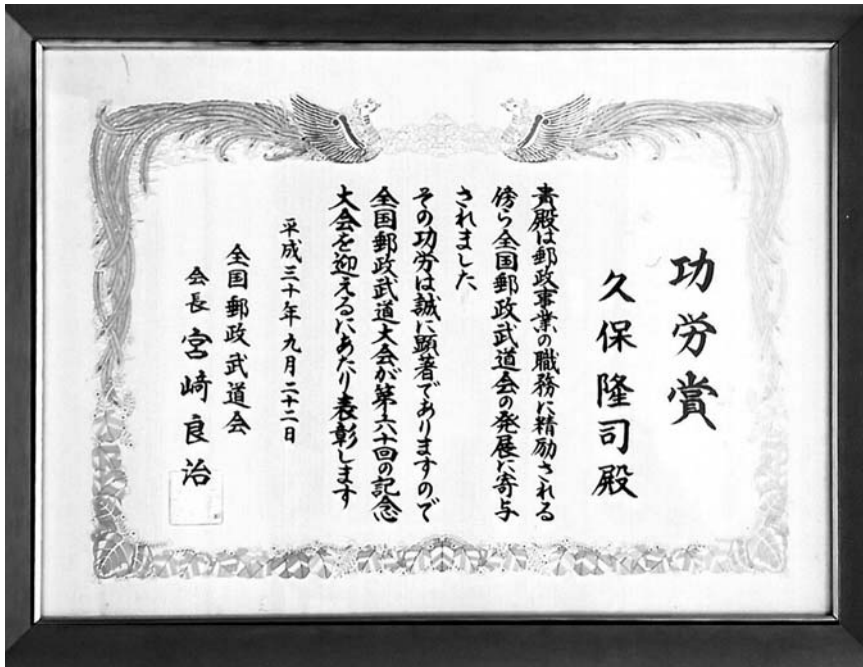 功労賞
久保隆司殿
貴殿は郵政事業の職務に精励される
傍ら全国郵政武道会の発展に寄与
されました
その功労は誠に顕著でありますので
全国郵政武道大会が第六十回の記念
大会を迎えるにあたり表彰します
平成三十年九月二十二日
全国郵政武道会
会長 宮﨑良治